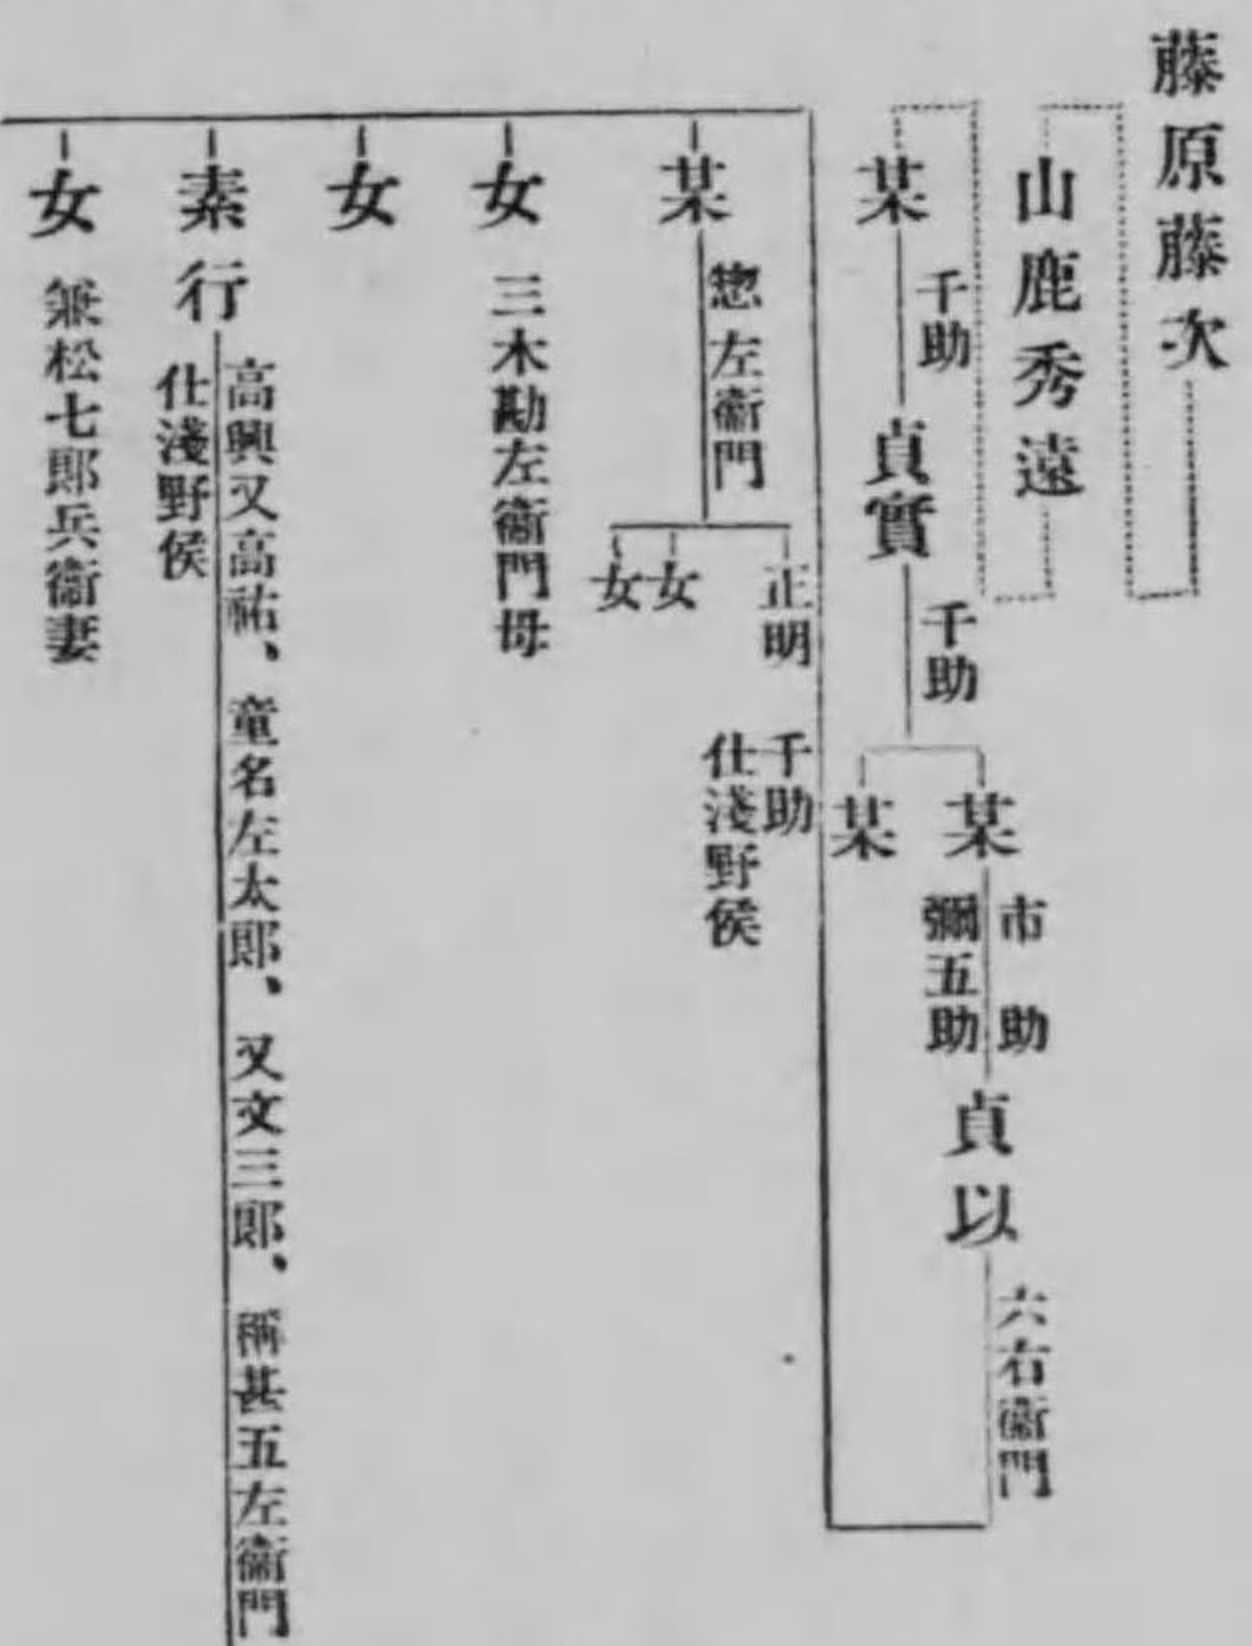 藤原藤次
山鹿秀遠
某
千助
貞實
千助
某
市助
彌五助
貞以
六右衞門
某
某
惣左衞門
正明
千助
仕淺野侯
女
女
女
三木勘左衞門母
女
素行
高興又高祐、童名左太郎、又文三郎、稱甚五左衞門
仕淺野侯
女
兼松七郎兵衞妻